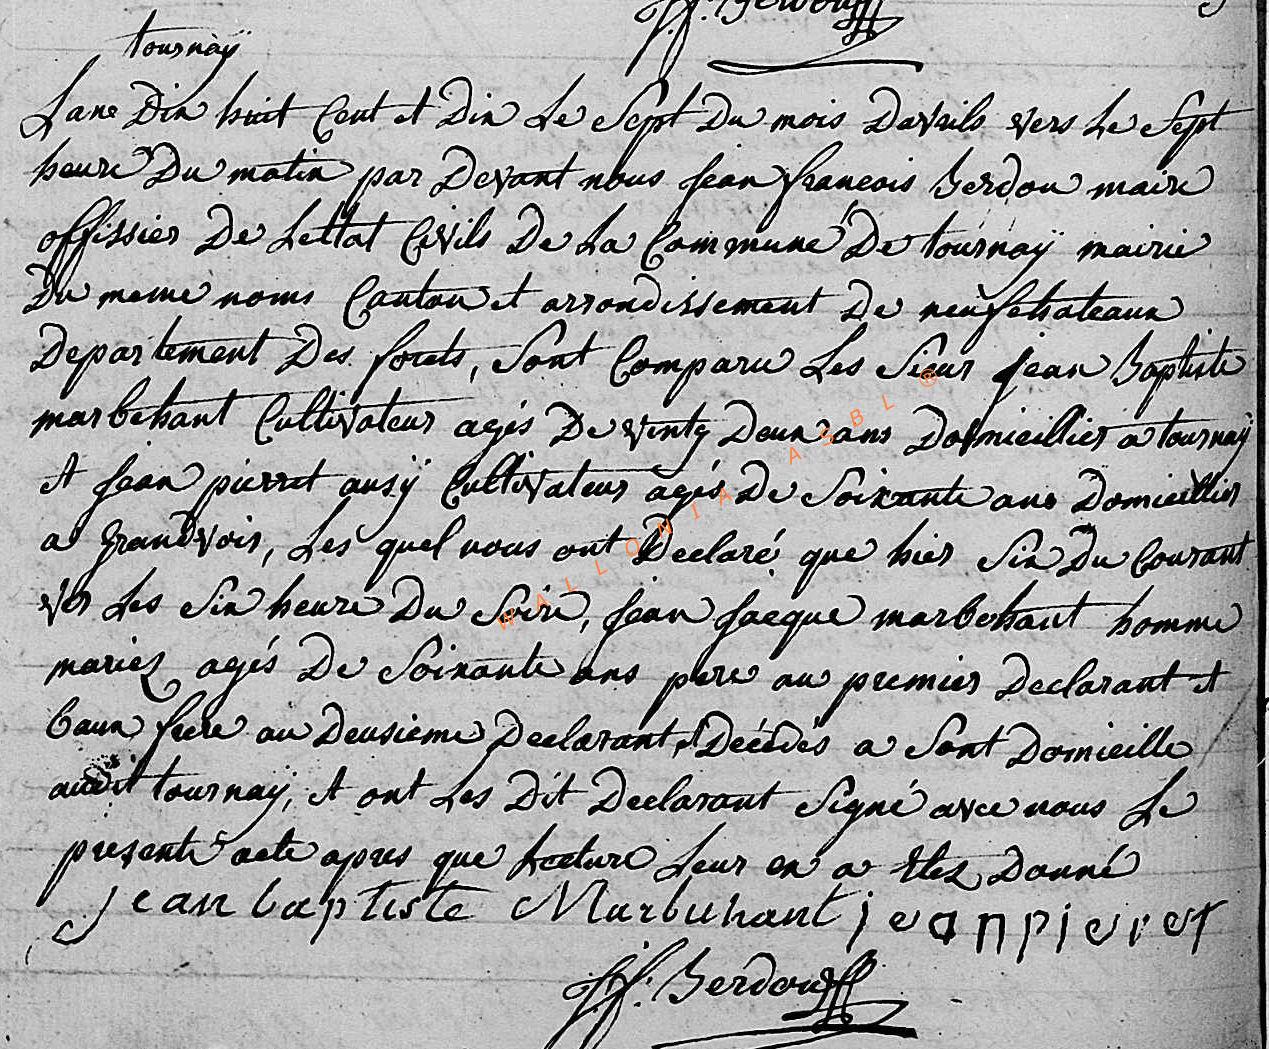 J.f. Berdouff
tournaÿ
Lans Dix huit Cent et Dix Le Sept Du mois Davrils vers Le Sept
heure Du matin par Devant nous jean françois Berdou maire
offissier De Lettat Civils De La Commune De tournaÿ mairie
Du meme noms Canton et arrondissement De neufchateaux
Departement Des forets, Sont Comparu Les Sieur jean Baptiste
marbehant Cultivateur agés De vintg Deux ans Domicillier a tournaÿ
et jean pierret ausÿ Cultivateur agés De Soixante ans Domicillier
a grandvoir, Les quel nous ont Declaré que hier Six Du Courant
ver Les Six heure Du Soire, jean jacque marbehant homme
mariez agés De Soixante ans pere au premier Declarant et
baux frere au Deusieme Declarant, Décédés a Sont Domicille
audit tournaÿ, et ont Les Dit Declarant Signé avec nous Le
presente acte apres que Lecture Leur en a Etez Donné
jean baptiste Marbuhant jeanpieret
J.f. Berdouff
WALLONIA ASBL ®